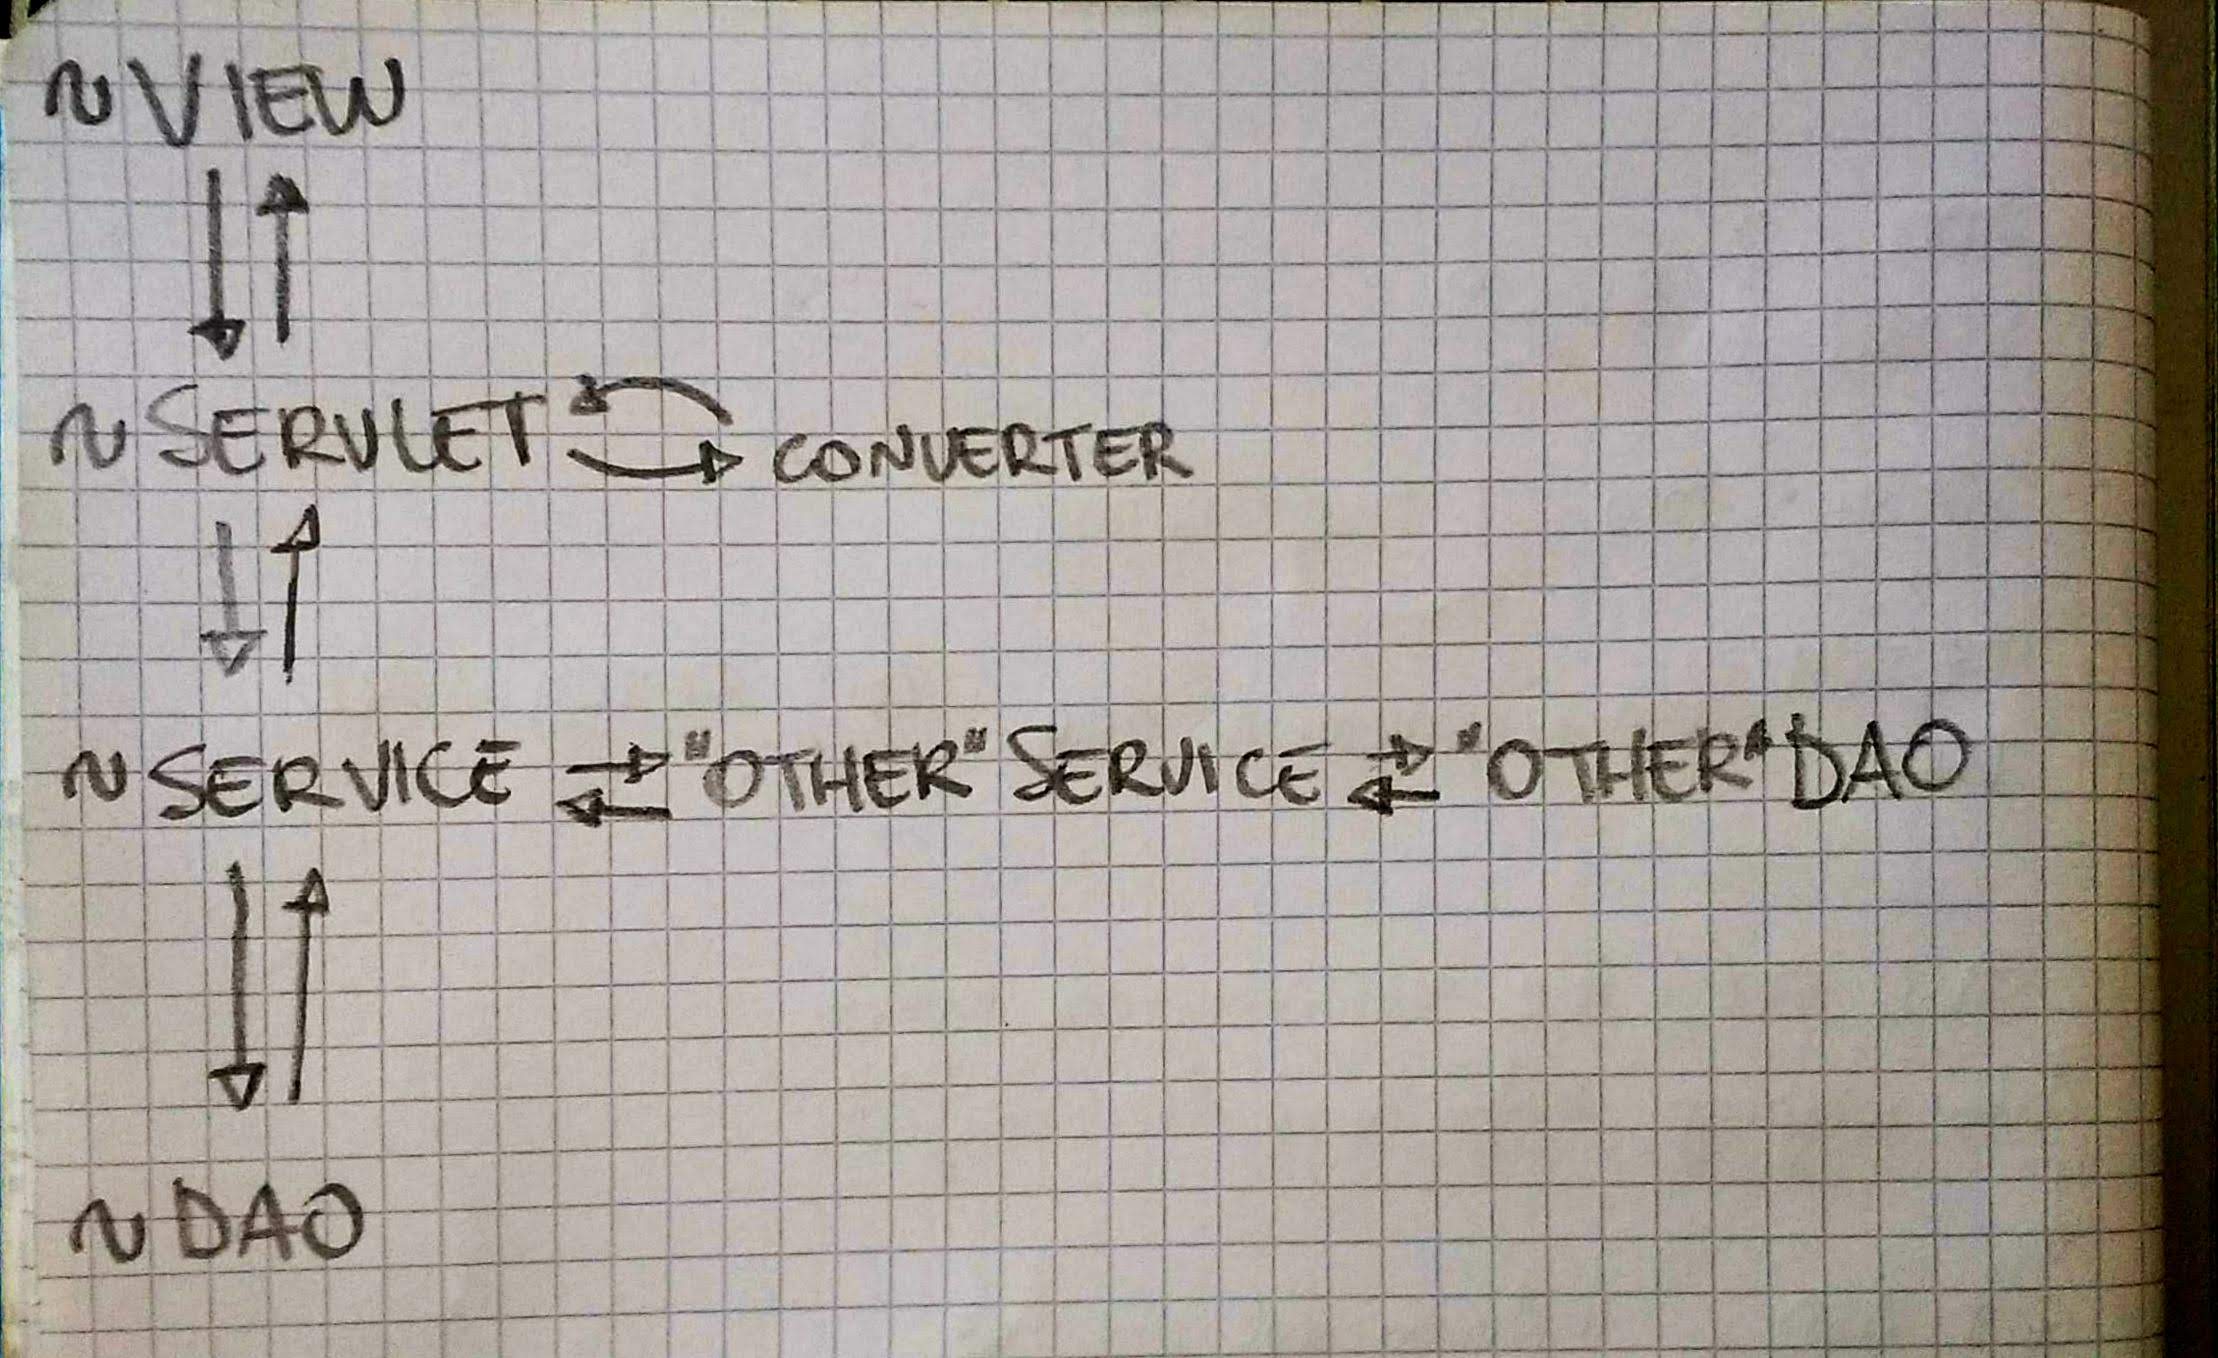 ~ VIEW
~ SERVLET CONVERTER
~ SERVICE "OTHER" SERVICE "OTHER" DAO
~ DAO